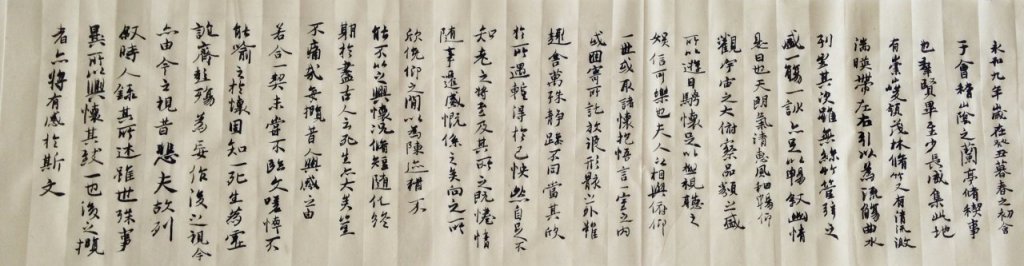 永和九年歲在癸丑暮春之初會
于會稽山陰之蘭亭脩禊事
也羣賢畢至少長咸集此地
有崇山峻領茂林脩竹又有清流激
湍暎帶左右引以為流觴曲水
列坐其次雖無絲竹管弦之
盛一觴一詠亦足以暢敘幽情
是日也天朗氣清惠風和暢仰
觀宇宙之大俯察品類之盛
所以遊目騁懷足以極視聽之
娛信可樂也夫人之相與俯仰
一世或取諸懷抱悟言一室之內
或因寄所託放浪形骸之外雖
趣舍萬殊靜躁不同當其欣
於所遇暫得於己怏然自足不
知老之將至及其所之既惓情
隨事遷感慨係之矣向之所
欣俛仰之間以為陳迹猶不
能不以之興懷況脩短隨化終
期於盡古人云死生亦大矣豈
不痛哉每攬昔興感之由
若合一契未嘗不臨文嗟悼不
能喻之於懷固知一死生為虛
誕齊彭殤為妄作後之視今
亦由今之視昔悲夫故列
敘時人錄其所述雖世殊事
異所以興懷其致一也後之攬
者亦將有感於斯文